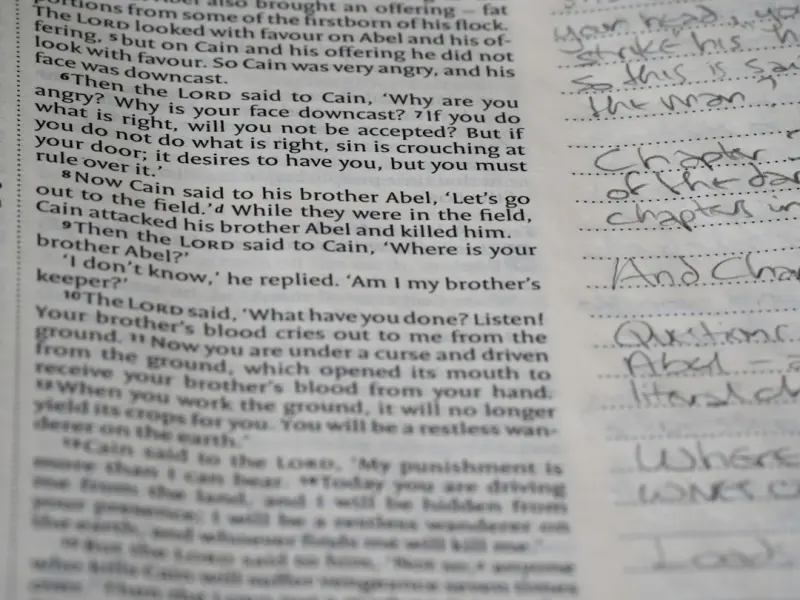 portions from some of the firstborn of his flock.
The LORD looked with favour on Abel and his of-
fering, 5 but on Cain and his offering he did not
look with favour. So Cain was very angry, and his
face was downcast.
6 Then the LORD said to Cain, ‘Why are you
angry? Why is your face downcast? 7 If you do
what is right, will you not be accepted? But if
you do not do what is right, sin is crouching at
your door; it desires to have you, but you must
rule over it.’
8 Now Cain said to his brother Abel, ‘Let’s go
out to the field.’d While they were in the field,
Cain attacked his brother Abel and killed him.
9 Then the LORD said to Cain, ‘Where is your
brother Abel?’
‘I don’t know,’ he replied. ‘Am I my brother’s
keeper?’
10 The LORD said, ‘What have you done? Listen!
Your brother’s blood cries out to me from the
ground. 11 Now you are under a curse and driven
from the ground, which opened its mouth to
receive your brother’s blood from your hand.
12 When you work the ground, it will no longer
yield its crops for you. You will be a restless wan-
derer on the earth.’
13 Cain said to the LORD, ‘My punishment is
more than I can bear. 14 Today you are driving
me from the land, and I will be hidden from
your presence; I will be a restless wanderer on
the earth, and whoever finds me will kill me.’
15 But the LORD said to him, ‘Not so; anyone
who kills Cain will suffer vengeance seven times
your head, you
strike his
so this is
the man
Chapter
of the
chapters in
And
Questions
Abel -
literal
Where